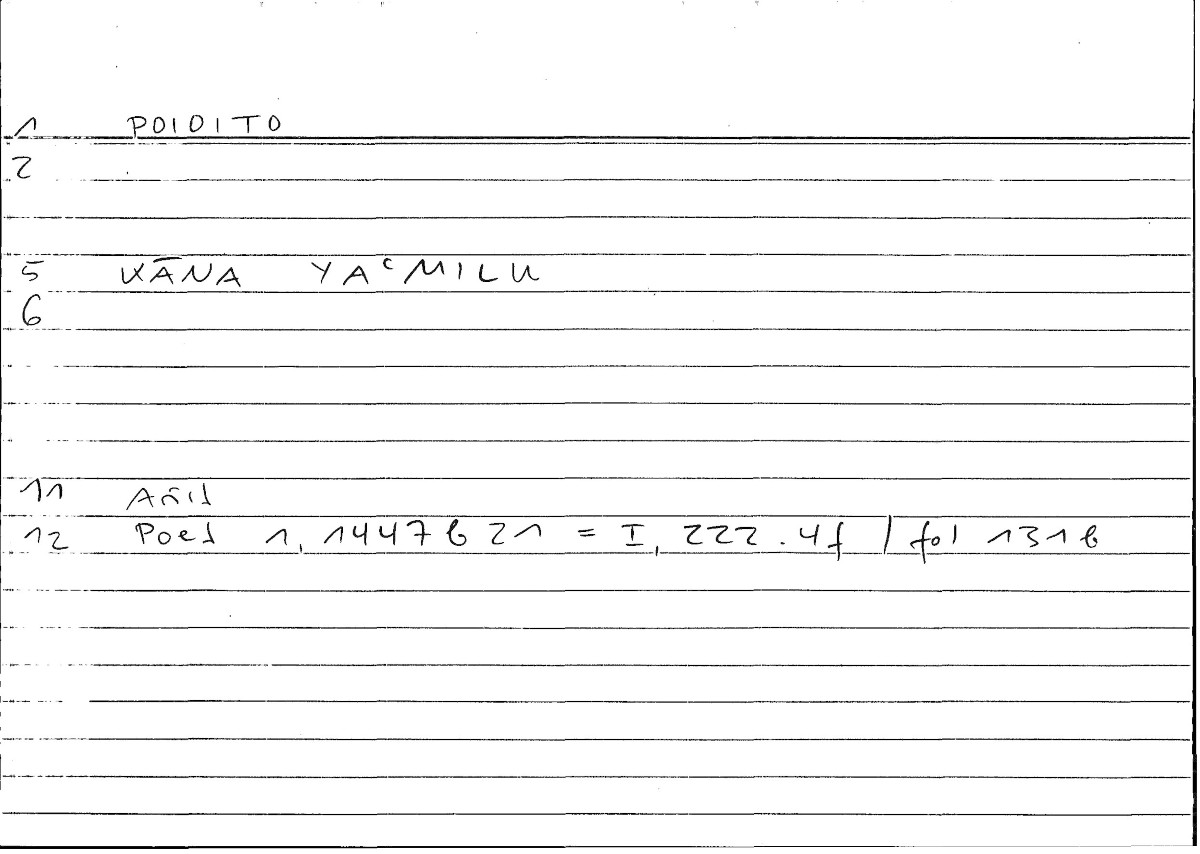 1 POIOITO
2
5 KĀNA YAᶜMILU
6
11 Añil
12 Poet 1, 1447b 21 = I, 222.4f / fol 131b